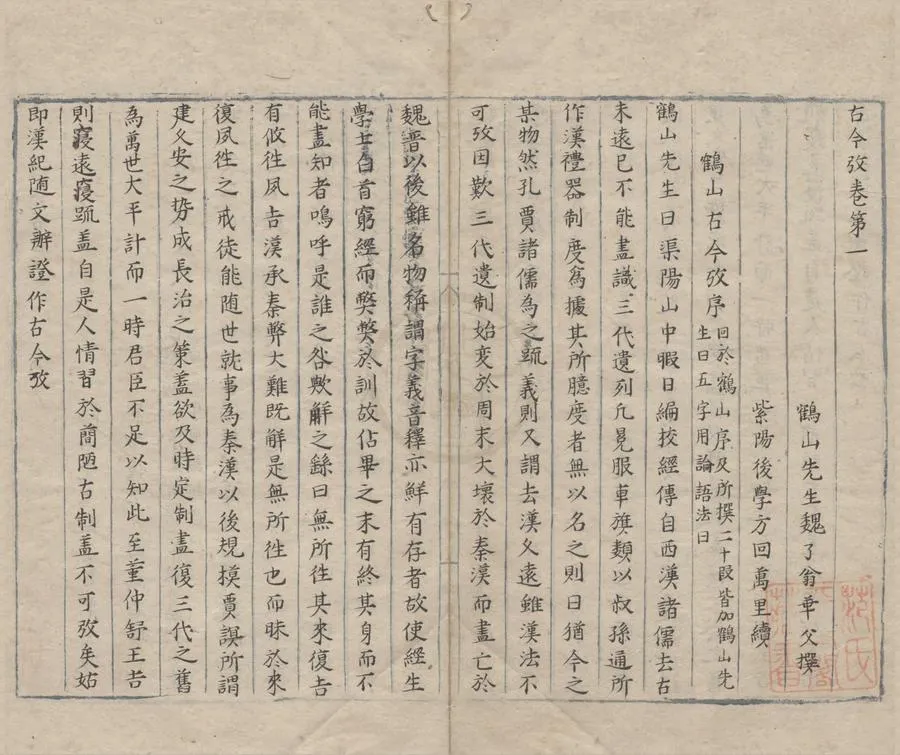 古今攷卷第一
鶴山先生魏了翁華父撰
紫陽後學方回萬里續
鶴山古今攷序回於鶴山序及所撰二十段皆加鶴山先
生曰五字用論語法曰
鶴山先生曰渠陽山中暇日編挍經傳自西漢諸儒去古
未遠已不能盡識三代遺列凡冕服車旗類以叔孫通所
作漢禮器制度爲據其所臆度者無以名之則曰猶今之
某物然孔賈諸儒為之䟽義則又謂去漢久遠雖漢法不
可攷因歎三代遺制始变於周末大壞於秦漢而盡亡於
魏晋以後雖名物稱謂字義音釋亦鮮有存者故使經生
學士白首窮經而弊弊於訓故佔畢之末有終其身而不
能盡知者嗚呼是誰之咎歟解之繇曰無所徃其來復吉
有攸徃夙吉漢承秦弊大難既解是無所徃也而昧於來
復夙徃之戒徒能随世就事為秦漢以後規摸賈誼所謂
建久安之势成長治之策盖欲及時定制盡復三代之舊
為萬世大平計而一時君臣不足以知此至董仲舒王吉
則寖遠寖踈盖自是人情習於簡陋古制盖不可攷矣姑
即漢紀随文辧證作古今攷